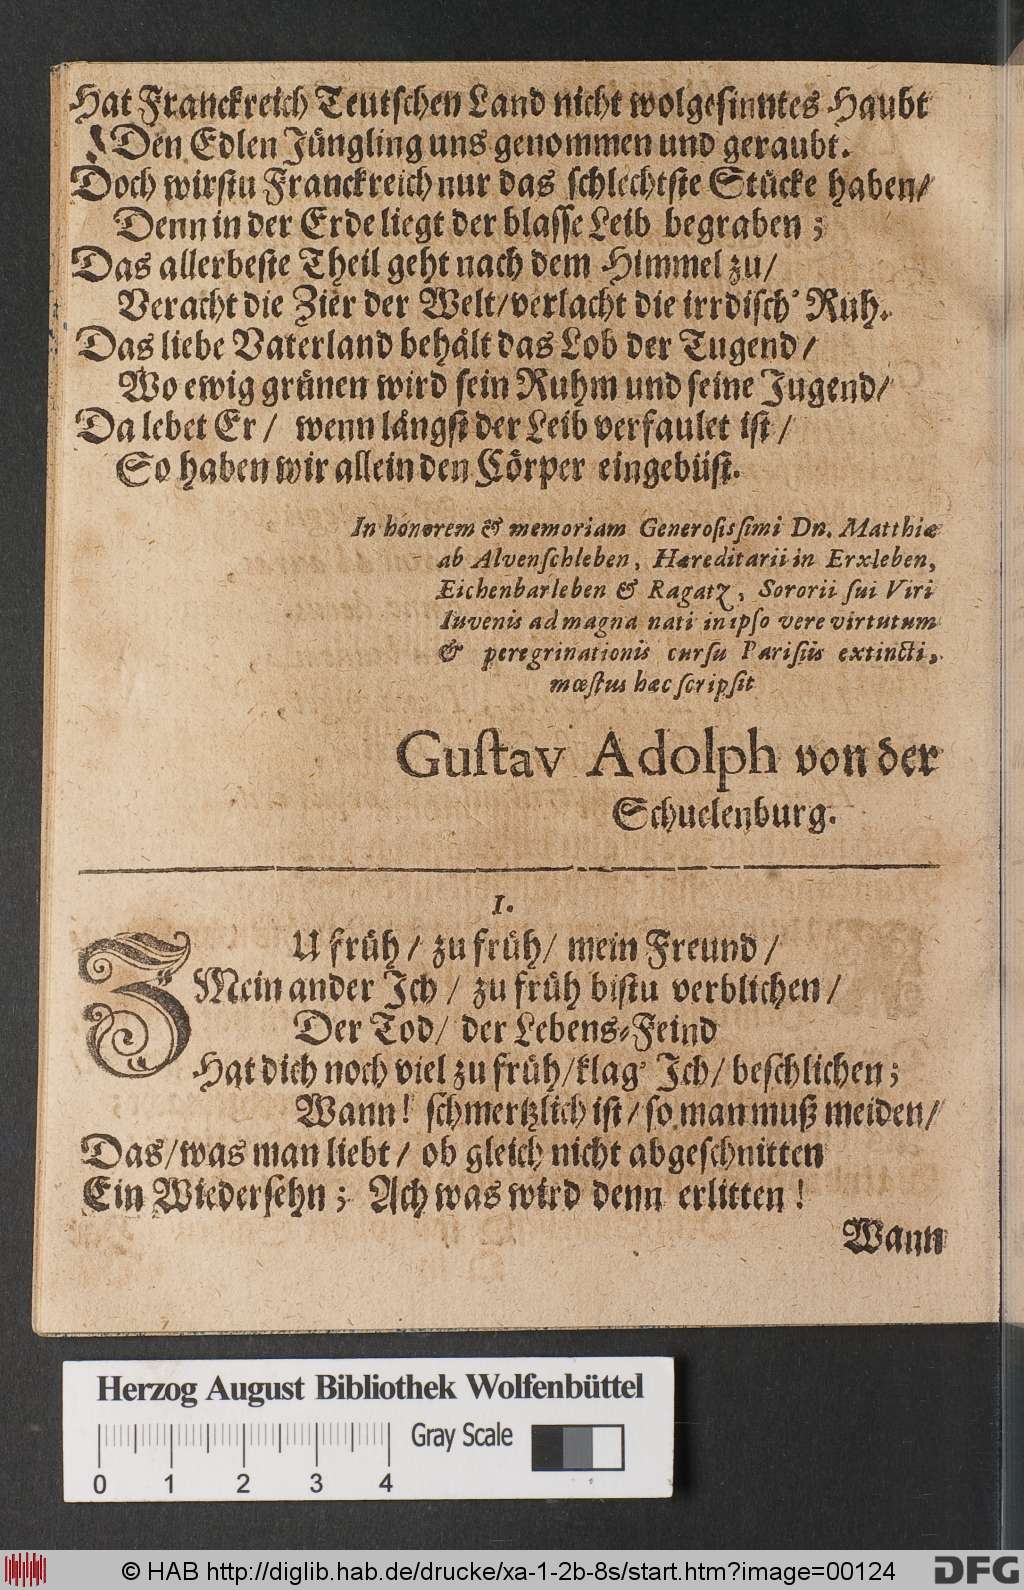 Hat Franckreich Teutschen Land nicht wolgesinntes Haubt
Den Edlen Jüngling uns genommen und geraubt.
Doch wirstu Franckreich nur das schlechtste Stücke haben/
Denn in der Erde liegt der blasse Leib begraben;
Das allerbeste Theil geht nach dem Himmel zu/
Veracht die Zier der Welt/verlacht die irrdisch' Ruh.
Das liebe Vaterland behält das Lob der Tugend/
Wo ewig grünen wird sein Ruhm und seine Jugend/
Da lebet Er/ wenn längst der Leib verfaulet ist/
So haben wir allein den Cörper eingebüst.
In honorem & memoriam Generosissimi Dn. Matthiæ
ab Alvenschleben, Hæreditarii in Erxleben,
Eichenbarleben & Ragatz, Sororii sui Viri
Iuvenis ad magna nati in ipso vere virtutum
& peregrinationis cursu Parisiis extincti,
mœstus hæc scripsit
Gustav Adolph von der
Schuelenburg.
I.
ZU früh/ zu früh/ mein Freund/
Mein ander Ich/ zu früh bistu verblichen/
Der Tod/ der Lebens-Feind
Hat dich noch viel zu früh/klag' Ich/ beschlichen;
Wann! schmertzlich ist/ so man muß meiden/
Das/was man liebt/ ob gleich nicht abgeschnitten
Ein Wiedersehn; Ach was wird denn erlitten!
Wann
Herzog August Bibliothek Wolfenbüttel
Gray Scale
0 1 2 3 4
© HAB http://diglib.hab.de/drucke/xa-1-2b-8s/start.htm?image=00124
DFG